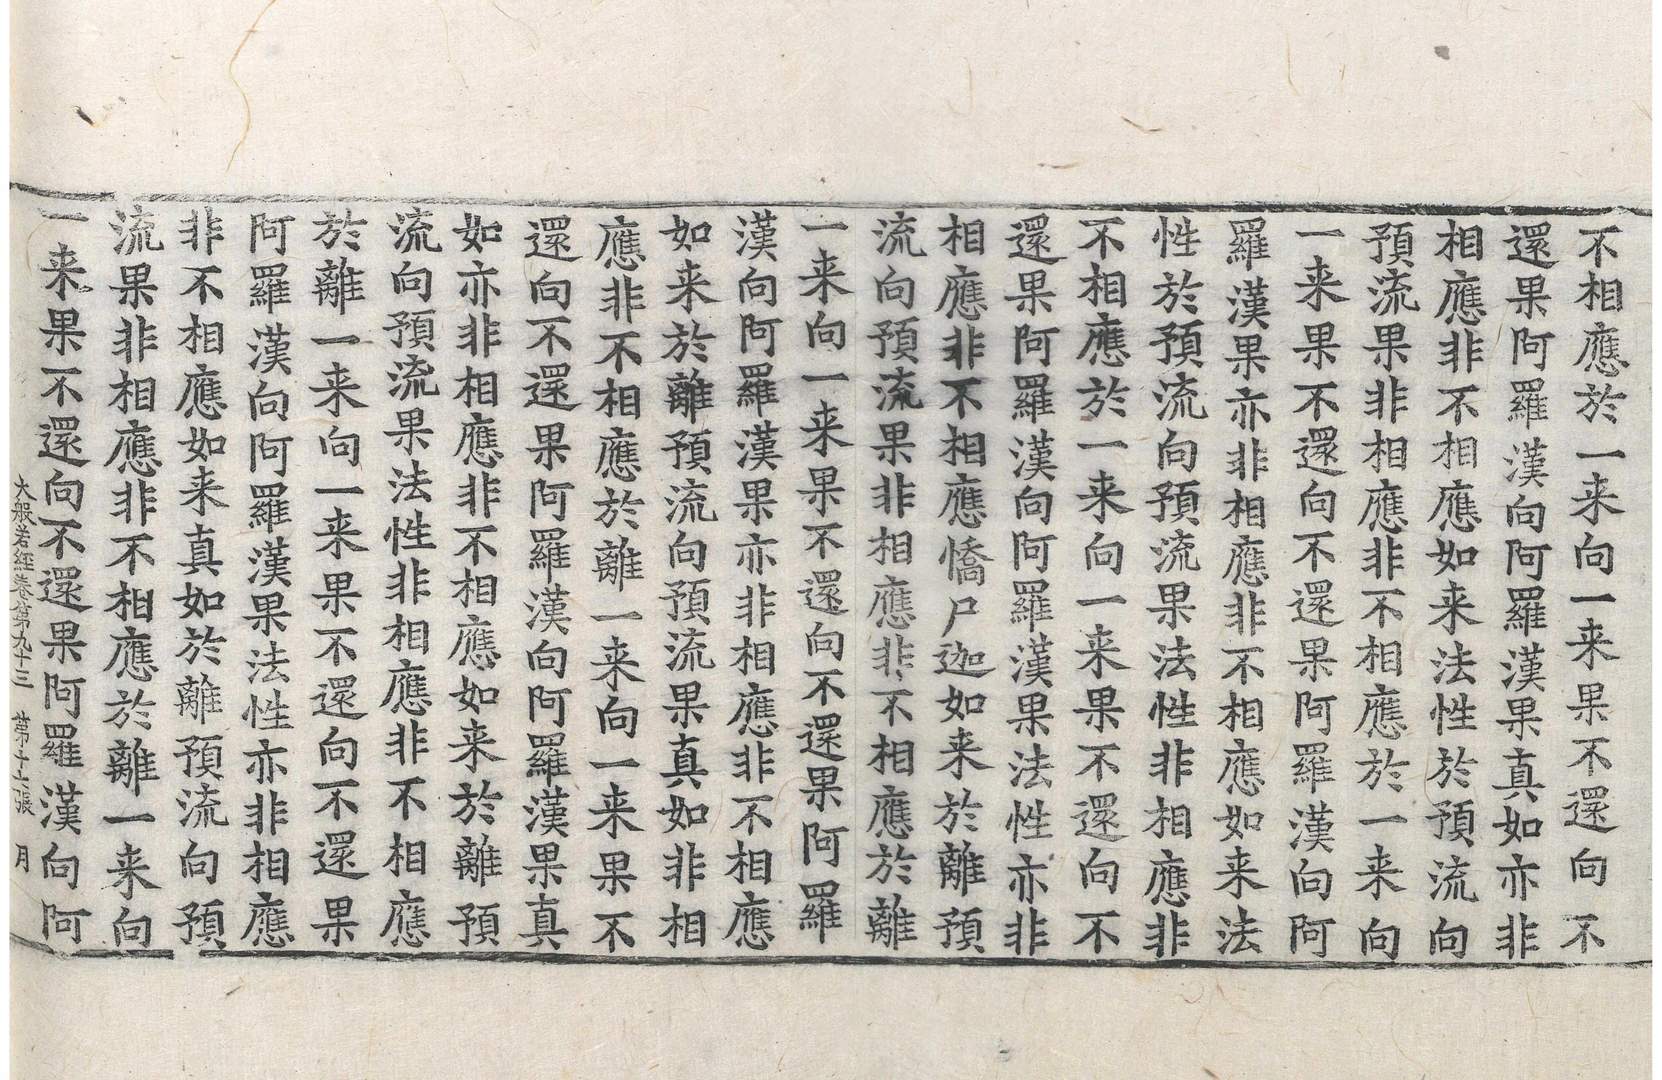 不相應於一来向一来果不還向不
還果阿羅漢向阿羅漢果真如亦非
相應非不相應如来法性於預流向
預流果非相應非不相應於一来向
一来果不還向不還果阿羅漢向阿
羅漢果亦非相應非不相應如来法
性於預流向預流果法性非相應非
不相應於一来向一来果不還向不
還果阿羅漢向阿羅漢果法性亦非
相應非不相應憍尸迦如来於離預
流向預流果非相應非不相應於離
一来向一来果不還向不還果阿羅
漢向阿羅漢果亦非相應非不相應
如来於離預流向預流果真如非相
應非不相應於離一来向一来果不
還向不還果阿羅漢向阿羅漢果真
如亦非相應非不相應如来於離預
流向預流果法性非相應非不相應
於離一来向一来果不還向不還果
阿羅漢向阿羅漢果法性亦非相應
非不相應如来真如於離預流向預
流果非相應非不相應於離一来向
一来果不還向不還果阿羅漢向阿
大般若經卷第九十三 第十七張 月